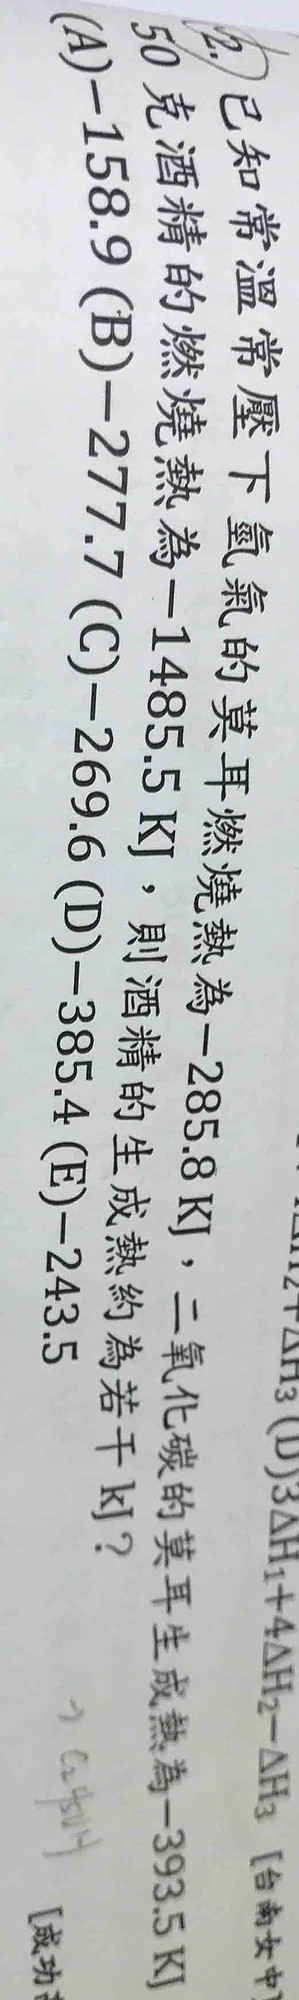 ΔH₂+ΔH₃ (D)3ΔH₁+4ΔH₂−ΔH₃ [台南女中]
2. 已知常溫常壓下氫氣的莫耳燃燒熱為−285.8 KJ，二氧化碳的莫耳生成熱為−393.5 KJ
50 克酒精的燃燒熱為−1485.5 KJ，則酒精的生成熱約為若干 kJ？
(A)−158.9 (B)−277.7 (C)−269.6 (D)−385.4 (E)−243.5
[成功